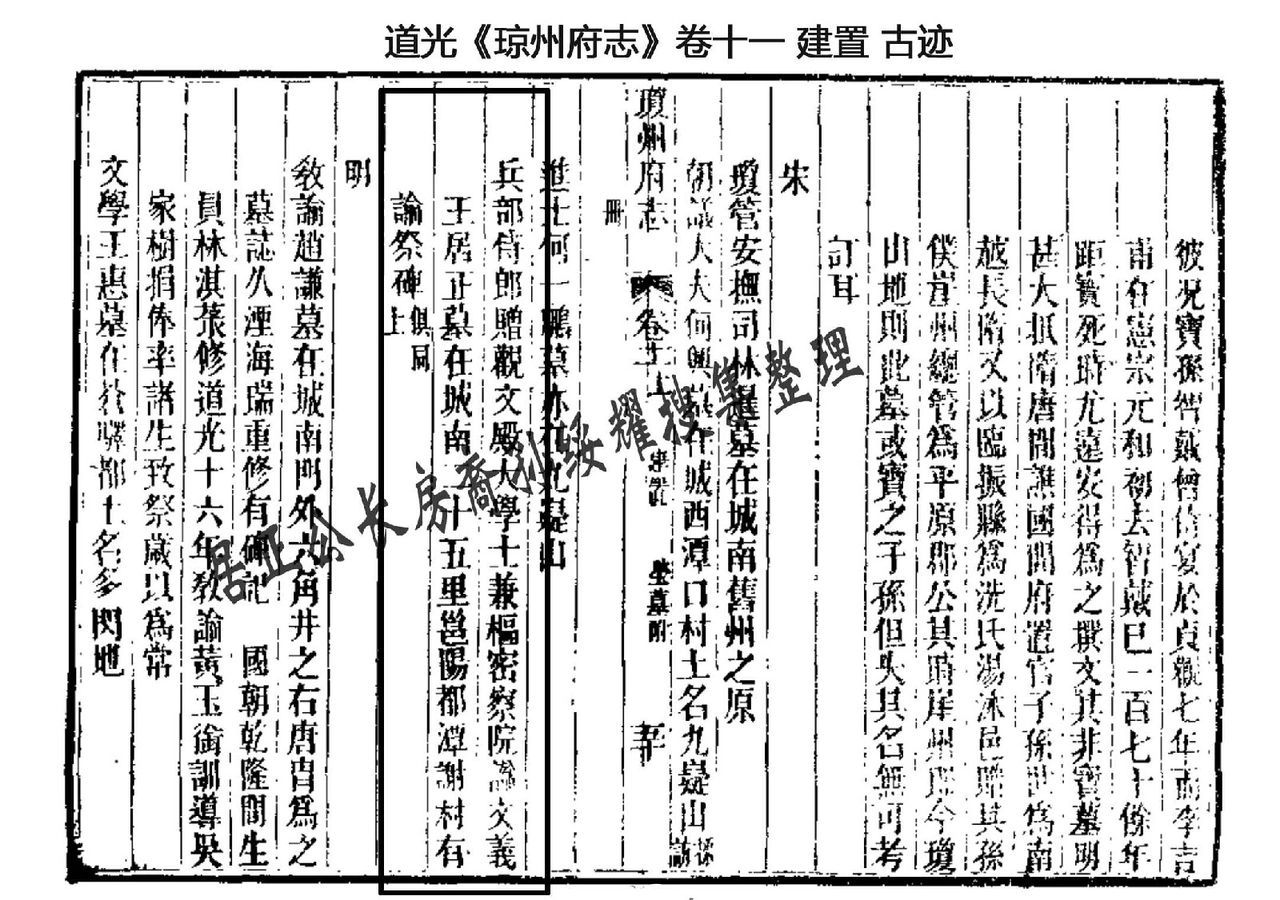 道光《琼州府志》卷十一 建置 古迹
彼况寶孫智戴曾信宴於貞觀七年而李吉
甫在憲宗元和初去智戴已一百七十餘年
距寶死時尤遠安得為之撰文其非寶墓明
甚大抵隋唐間譙國開府置官子孫世為南
越長隋文以臨振縣為洗氏湯沐邑贈其孫
僕崖州總管為平原郡公其時崖州即今瓊
山地則此墓或寶之子孫但失其名無可考
訂耳
宋
瓊管安撫司林暹墓在城南舊州之原
朝議大夫何興墓在城西潭口村土名九嶷山採訪
冊
瓊州府志 卷十一 建置 塋墓附
進士何一鵬墓亦在九嶷山
兵部侍郎贈觀文殿大學士兼樞密察院諡文義
王居正墓在城南二十五里邕陽都潭謝村有
諭祭碑俱同上
明
教諭趙謙墓在城南門外六角井之右唐胄為之
墓誌久湮海瑞重修有碑記 國朝乾隆間生
員林淇菉修道光十六年教諭黃玉銜訓導吳
家樹捐俸率諸生致祭歲以為常
文學王惠墓在蒼驛都土名多閃地
居正公长房裔孙绥耀搜集整理